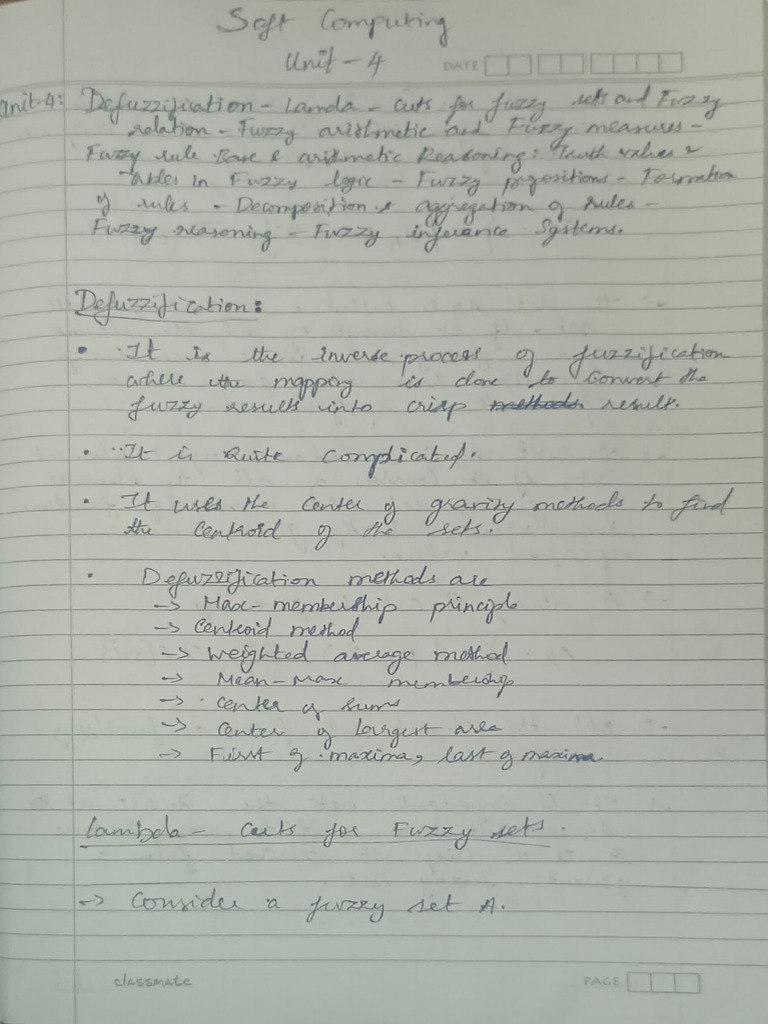 Soft Computing
Unit - 4
DATE
Unit-4: Defuzzification - Lamda - cuts for fuzzy sets and Fuzzy
relation - Fuzzy arithmetic and Fuzzy measures -
Fuzzy rule Base & arithmetic Reasoning: Truth values &
Tables In Fuzzy logic - Fuzzy propositions - Formation
of rules - Decomposition & aggregation of rules -
Fuzzy reasoning - Fuzzy inferance Systems.
Defuzzification:
• It is the inverse process of fuzzification
where the mapping is done to convert the
fuzzy results into crisp methods result.
• It is Quite Complicated.
• It uses the center of gravity methods to find
the centroid of the sets.
• Defuzzification methods are
→ Max-membership principle
→ Centroid method
→ Weighted average method
→ Mean-Max membership
→ center of sums
→ center of largest area
→ First of maxima, last of maxima.
Lambda - cuts for Fuzzy sets.
→ Consider a fuzzy set A.
classmate
PAGE